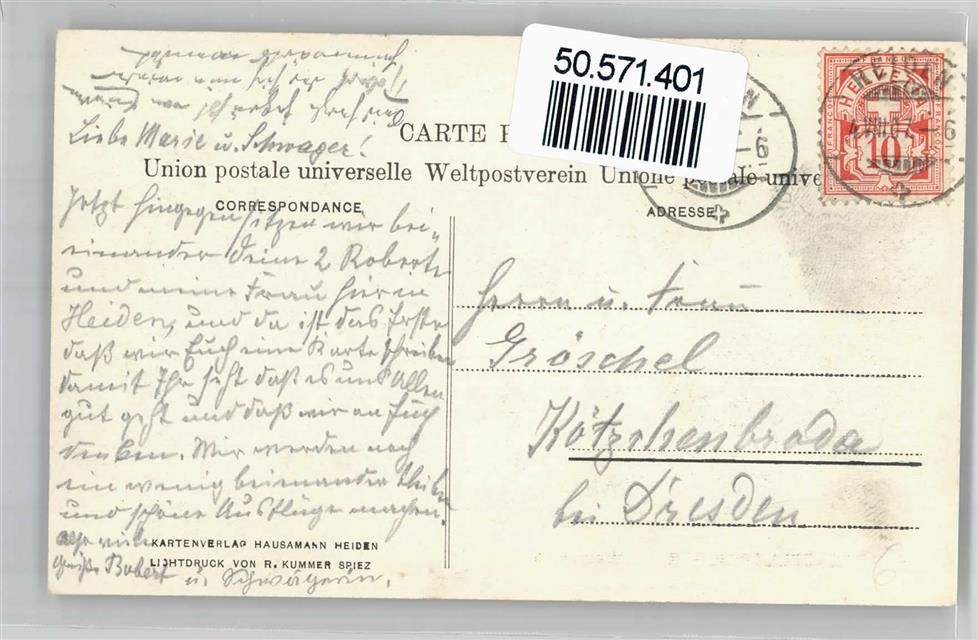 50.571.401
CARTE
Union postale universelle Weltpostverein Unione postale unive
CORRESPONDANCE
ADRESSE
HELVETIA
10
Liebe Marie u. Schwager!
Jetzt hingegen sitzen wir bei
einander deine 2 Roberte
und meine Frau hier in
Heiden, und da ist das Erste
daß wir Euch eine Karte schreiben
damit Ihr seht daß es uns Allen
gut geht und daß wir an Euch
denken. Wir werden noch
ein wenig beieinander bleiben
und schöne Ausflüge machen.
also viele
Grüße Robert
u. Schwägerin.
Herrn u. Frau
Gröschel
Kötzschenbroda
bei Dresden
KARTENVERLAG HAUSAMANN HEIDEN
LICHTDRUCK VON R. KUMMER SPIEZ